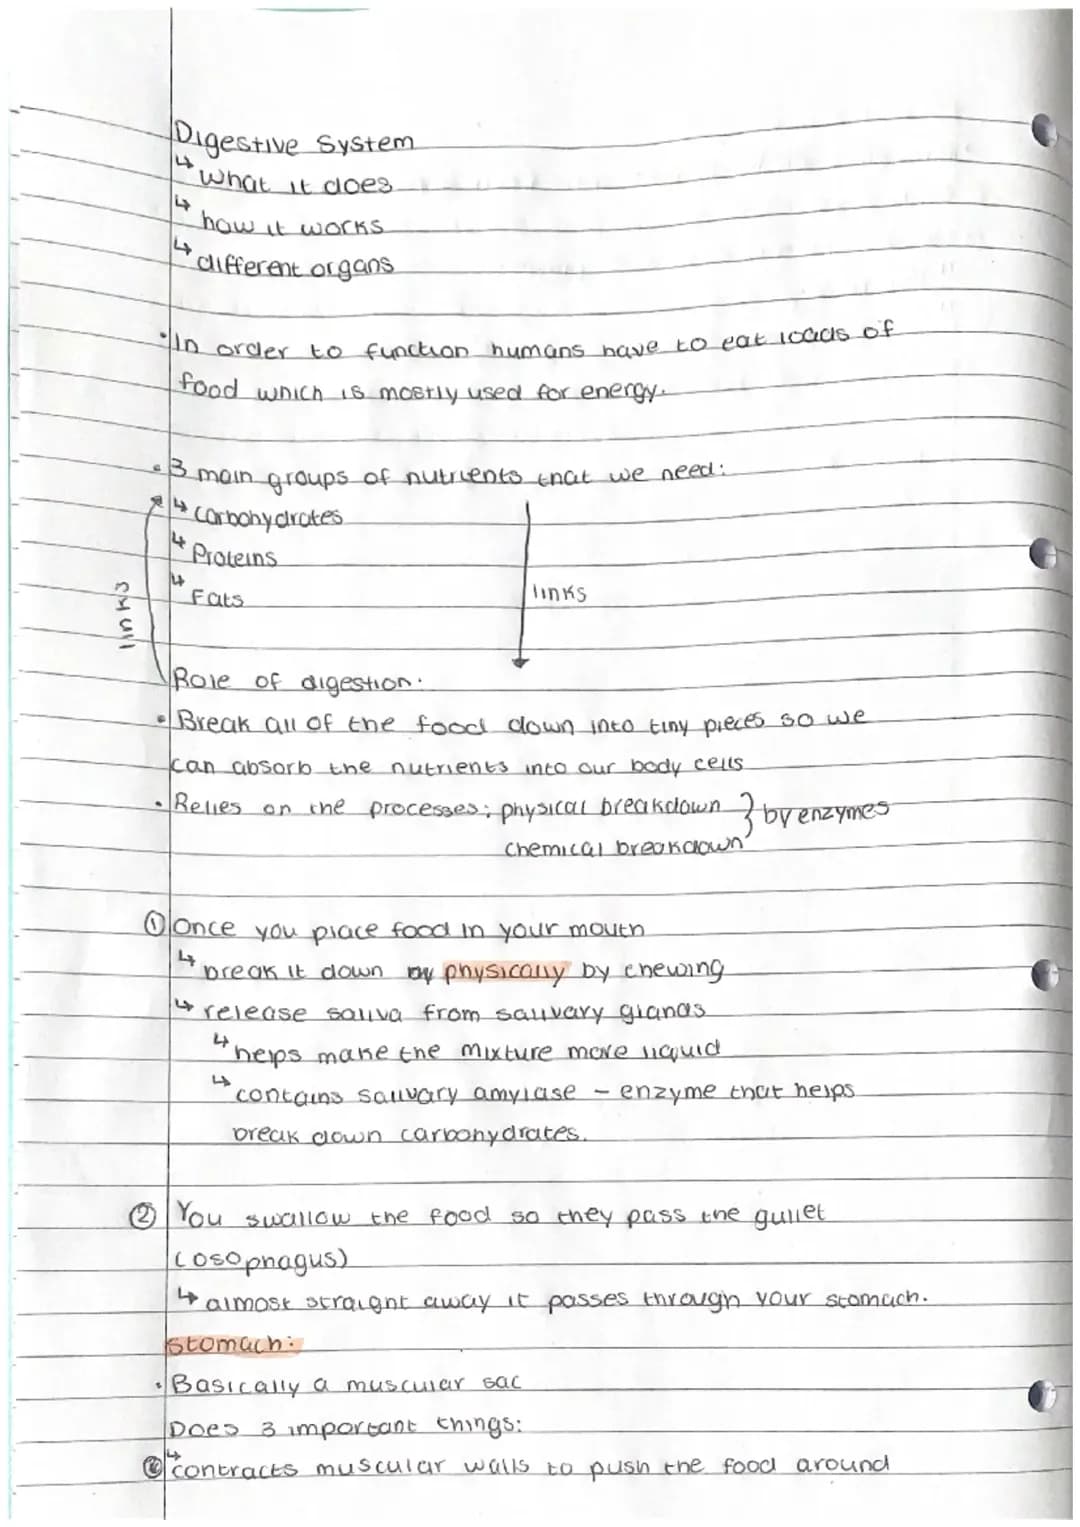 Digestive System
↳ what it does
↳ how it works
↳ different organs
• In order to function humans have to eat loads of
food which is mostly used for energy.
• 3 main groups of nutrients that we need:
↳ carbohydrates
↳ Proteins
↳ Fats
links
links
Role of digestion:
• Break all of the food down into tiny pieces so we
can absorb the nutrients into our body cells
• Relies on the processes; physical breakdown } by enzymes
chemical breakdown
① Once you place food in your mouth
↳ break it down physically by chewing
↳ release saliva from salivary glands
↳ helps make the mixture more liquid
↳ contains salivary amylase - enzyme that helps
break down carbohydrates.
② You swallow the food so they pass the gullet
(osophagus)
↳ almost straight away it passes through your stomach.
Stomach:
• Basically a muscular sac
Does 3 important things:
↳ contracts muscular walls to push the food around